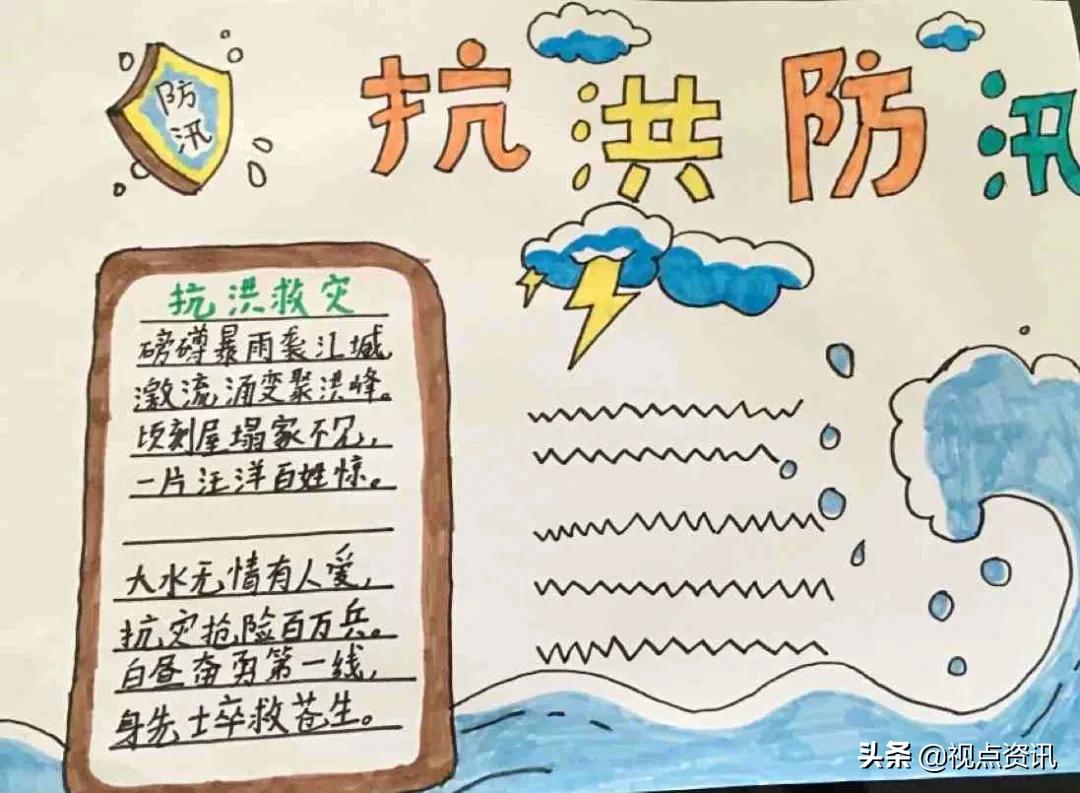 防
汛
抗洪防汛
抗洪救灾
磅礴暴雨袭江城,
激流涌变聚洪峰。
顷刻屋塌家不见,
一片汪洋百姓惊。
大水无情有人爱,
抗灾抢险百万兵。
白昼奋勇第一线,
身先士卒救苍生。
头条 @视点资讯